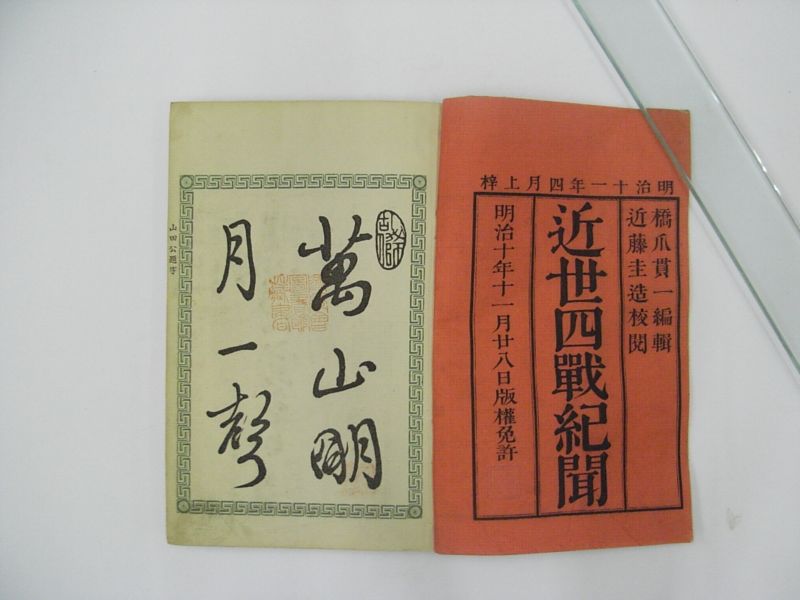 明治十一年四月上梓
橋爪貫一編輯
近藤圭造校閲
近世四戰紀聞
明治十年十一月廿八日版權免許
萬山明
月一声
山田公題字